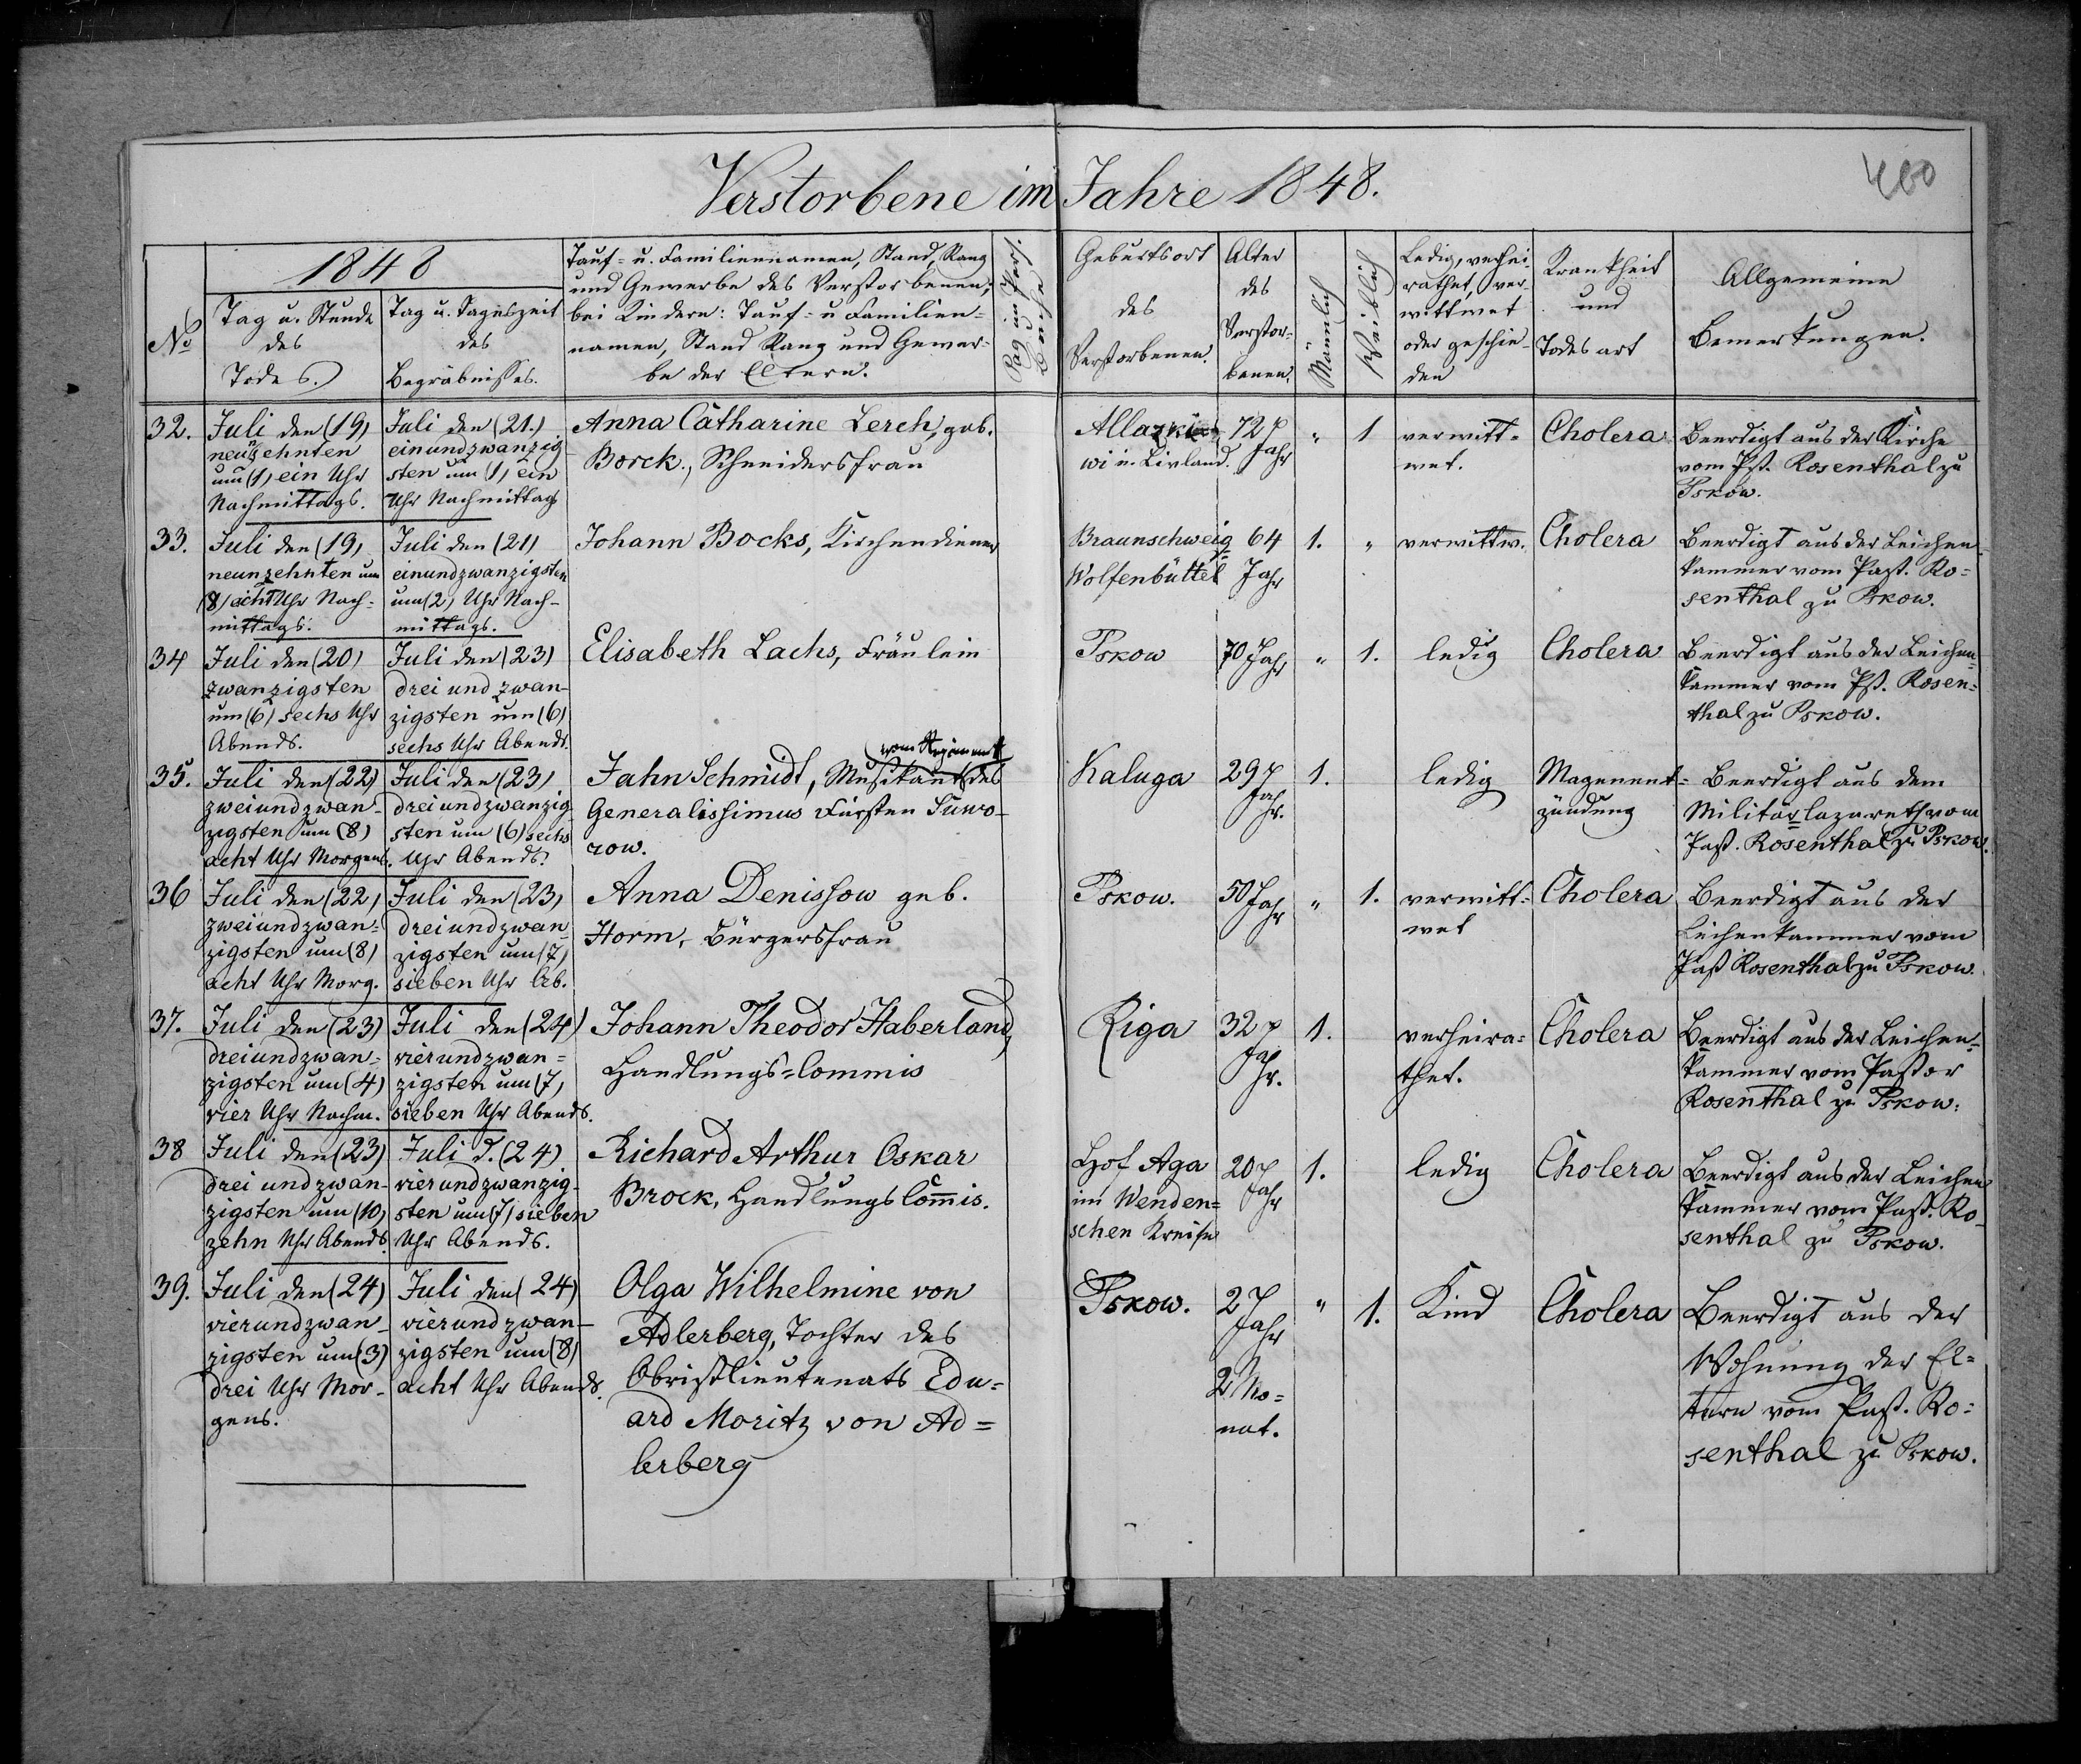 Verstorbene im Jahre 1848.
400
No
1848
Tag u. Stunde
des
Todes.
Tag u. Tageszeit
des
Begräbnisses.
Tauf- u. Familiennamen, Stand, Rang
und Gewerbe des Verstorbenen;
bei Kindern: Tauf- u Familien-
namen, Stand Rang und Gewer-
be der Eltern.
Pag im Pers.
Buche
Geburtsort
des
Verstorbenen.
Alter
des
Verstor-
benen.
Männlich
Weiblich
Ledig, verhei-
rathet, ver-
wittwet
oder geschie-
den
Krankheit
und
Todesart
Allgemeine
Bemerkungen.
32.
Juli den (19)
neunzehnten
um (1) ein Uhr
Nachmittags.
Juli den (21.)
einundzwanzig
sten um (1) ein
Uhr Nachmittags
Anna Catharine Lerch, geb.
Borck., Schneidersfrau
wi in Livland.
72
Jahr
"
1
verwitt-
wet.
Cholera
Beerdigt aus der Kirche
vom Past. Rosenthal zu
Pskow.
33.
Juli den (19)
neunzehnten um
(8) acht Uhr Nach-
mittags.
Juli den (21)
einundzwanzigsten
um (2) Uhr Nach-
mittags.
Johann Bocks, Kirchendiener
Braunschweig
Wolfenbüttel
64
Jahr
1.
"
verwittw.
Cholera
Beerdigt aus der Leichen-
kammer vom Past. Ro-
senthal zu Pskow.
34
Juli den (20)
zwanzigsten
um (6) sechs Uhr
Abends.
Juli den (23)
drei und zwan-
zigsten um (6)
sechs Uhr Abends.
Elisabeth Lachs, Fräulein
Pskow
70 Jahr
"
1.
ledig
Cholera
Beerdigt aus der Leichen-
kammer vom Past. Rosen-
thal zu Pskow.
35.
Juli den (22)
zweiundzwan-
zigsten um (8)
acht Uhr Morgens.
Juli den (23)
dreiundzwanzig-
sten um (6) sechs
Uhr Abends.
vom Regiment
Jahn Schmidt, Musikant des
Generalissimus Fürsten Suwo-
row.
Kaluga
29
Jahr.
1.
ledig
Magenent-
zündung
Beerdigt aus dem
Militärlazareth vom
Past. Rosenthal zu Pskow.
36
Juli den (22)
zweiundzwan-
zigsten um (8)
acht Uhr Morg.
Juli den (23)
dreiundzwan-
zigsten um (7)
sieben Uhr Ab.
Anna Denissow geb.
Horm, Bürgersfrau
Pskow.
50 Jahr
"
1.
verwitt-
wet
Cholera
Beerdigt aus der
Leichenkammer vom
Past Rosenthal zu Pskow.
37.
Juli den (23)
dreiundzwan-
zigsten um (4)
vier Uhr Nachm.
Juli den (24)
vierundzwan-
zigsten um (7)
sieben Uhr Abends.
Johann Theodor Haberland,
Handlungs-Commis
Riga
32
Jahr.
1.
verheira-
thet.
Cholera
Beerdigt aus der Leichen-
kammer vom Pastor
Rosenthal zu Pskow.
38
Juli den (23)
drei und zwan-
zigsten um (10)
zehn Uhr Abends.
Juli d. (24)
vierundzwanzig-
sten um (7) sieben
Uhr Abends.
Richard Arthur Oskar
Brock, Handlungs Com̄is.
Hof Aga
im Wenden-
schen Kreise
20
Jahr
1.
ledig
Cholera
Beerdigt aus der Leichen
kammer vom Past. Ro-
senthal zu Pskow.
39.
Juli den (24)
vierundzwan-
zigsten um (3)
drei Uhr Mor-
gens.
Juli den (24)
vierundzwan-
zigsten um (8)
acht Uhr Abends.
Olga Wilhelmine von
Adlerberg, Tochter des
Obristlieutenats Edu-
ard Moritz von Ad-
lerberg
Pskow.
2
Jahr
2 Mo-
nat.
"
1.
Kind
Cholera
Beerdigt aus der
Wohnung der El-
tern vom Past. Ro-
senthal zu Pskow.